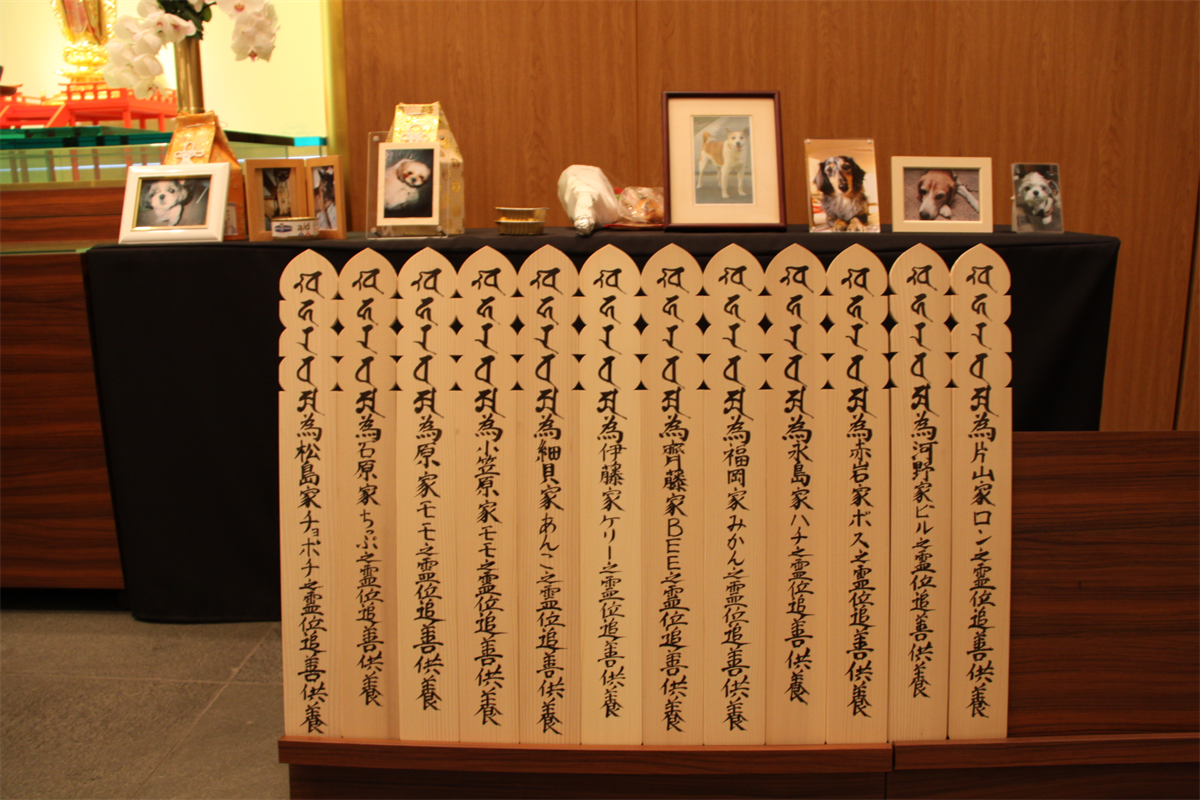 為片山家ロン之霊位追善供養
為河野家ビル之霊位追善供養
為赤岩家ボス之霊位追善供養
為永島家ハチ之霊位追善供養
為福岡家みかん之霊位追善供養
為齊藤家BEE之霊位追善供養
為伊藤家ケリー之霊位追善供養
為細貝家あんこ之霊位追善供養
為小笠原家モモ之霊位追善供養
為原家モモ之霊位追善供養
為石原家ちっぷ之霊位追善供養
為松島家チョボチ之霊位追善供養